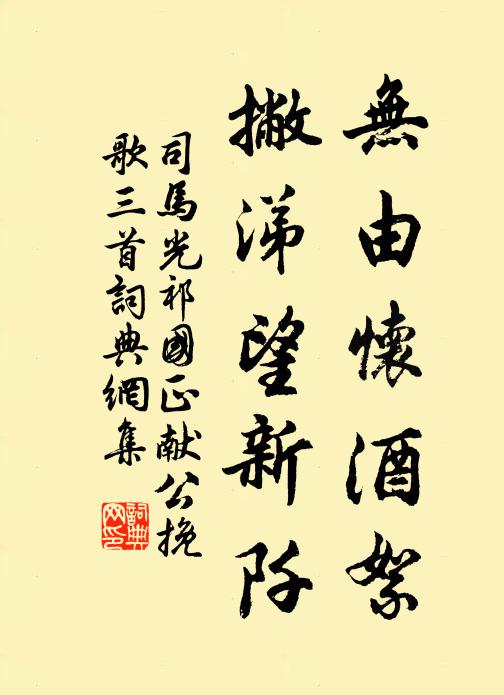 無由懷酒絮
撇涕望新阡
司馬光祁國正献公挽
歌三首詞典網集
詞典网印